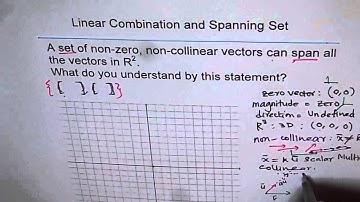 Linear Combination and Spanning Set
A set of non-zero, non-collinear vectors can span all
the vectors in R².
What do you understand by this statement?
{ [ ] , [ ] }
zero vector: (0,0)
magnitude = zero
direction = Undefined
R³: 3D : (0,0,0)
non-collinear:
Scalar Multi
collinear